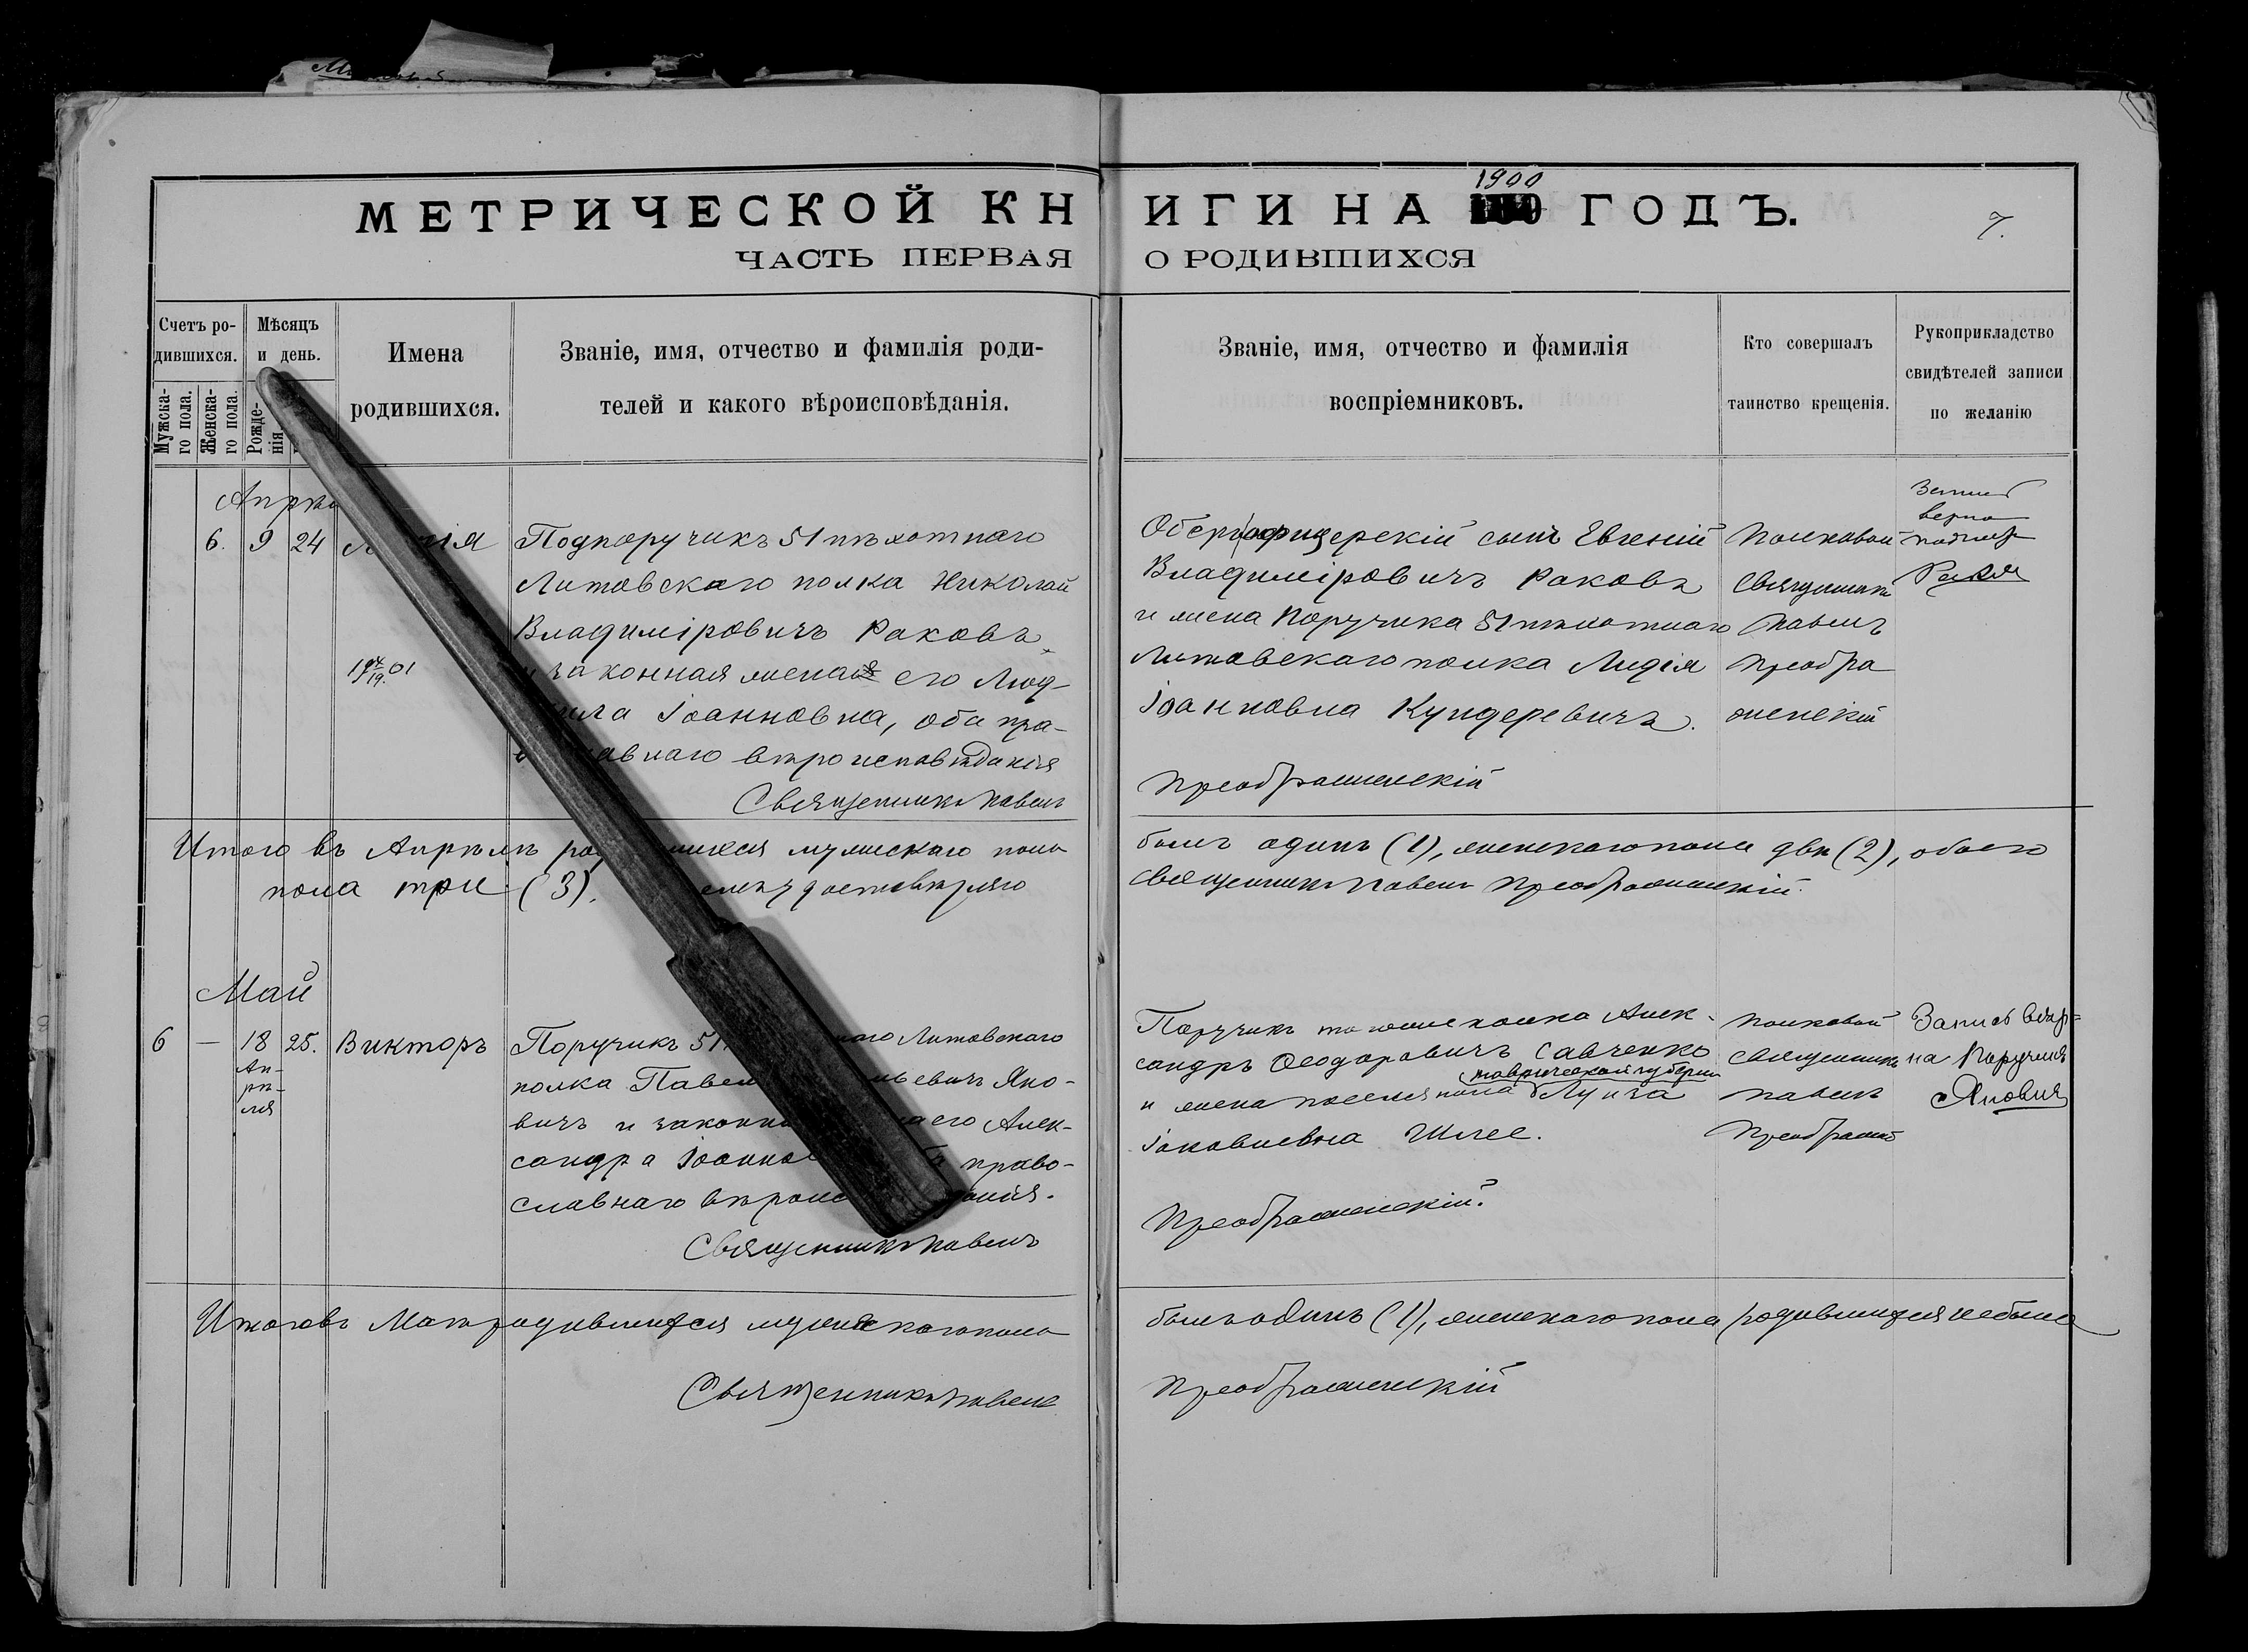 МЕТРИЧЕСКОЙ КНИГИ НА 1900 ГОДЪ.
7.
ЧАСТЬ ПЕРВАЯ О РОДИВШИХСЯ
Счетъ ро-
дившихся.
Мужска-
го пола.
Женска-
го пола.
Мѣсяцъ
и день.
Рожде-
нія
Имена
родившихся.
Званіе, имя, отчество и фамилія роди-
телей и какого вѣроисповѣданія.
Званіе, имя, отчество и фамилія
воспріемниковъ.
Кто совершалъ
таинство крещенія.
Рукоприкладство
свидѣтелей записи
по желанію
6. 9 24
Подпоручикъ 51 пѣхотнаго
Литовскаго полка Николай
Владиміровичъ Раковъ
законная жена его Люд-
Іоанновна, оба пра-
вѣроисповѣданія
Священникъ Павелъ
Оберъ офицерскій сынъ Евгеній
Владиміровичъ Раковъ
и жена Поручика 51 пѣхотнаго
Литовскаго полка Лидія
Іоанновна Кундеревичъ.
Преображенскій
Полковой
Священникъ
Павелъ
Преобра
женскій
верна
Итого въ Апрѣлѣ мужескаго пола
пола три (3).
былъ одинъ (1), женскаго пола двѣ (2), обоего
Священникъ Павелъ Преображенскій.
Май
6 — 18 25. Викторъ
Ап-
рѣ-
ля
Поручикъ 51 Литовскаго
полка Павелъ Яно-
вичъ и его Алек-
сандра право-
славнаго
Священникъ Павелъ
Поручикъ того же полка Алек-
сандръ Ѳеодоровичъ Савченко
Таврической губерніи
и жена поселянина Луиза
Іаковлевна Шлее.
Преображенскій.
Полковой
Священникъ
Павелъ
Преображен
Запись вѣр-
на Поручикъ
Яновичъ
Итого въ Маѣ родившихся мужескаго пола
былъ одинъ (1), женскаго пола родившихся не было
Священникъ Павелъ
Преображенскій